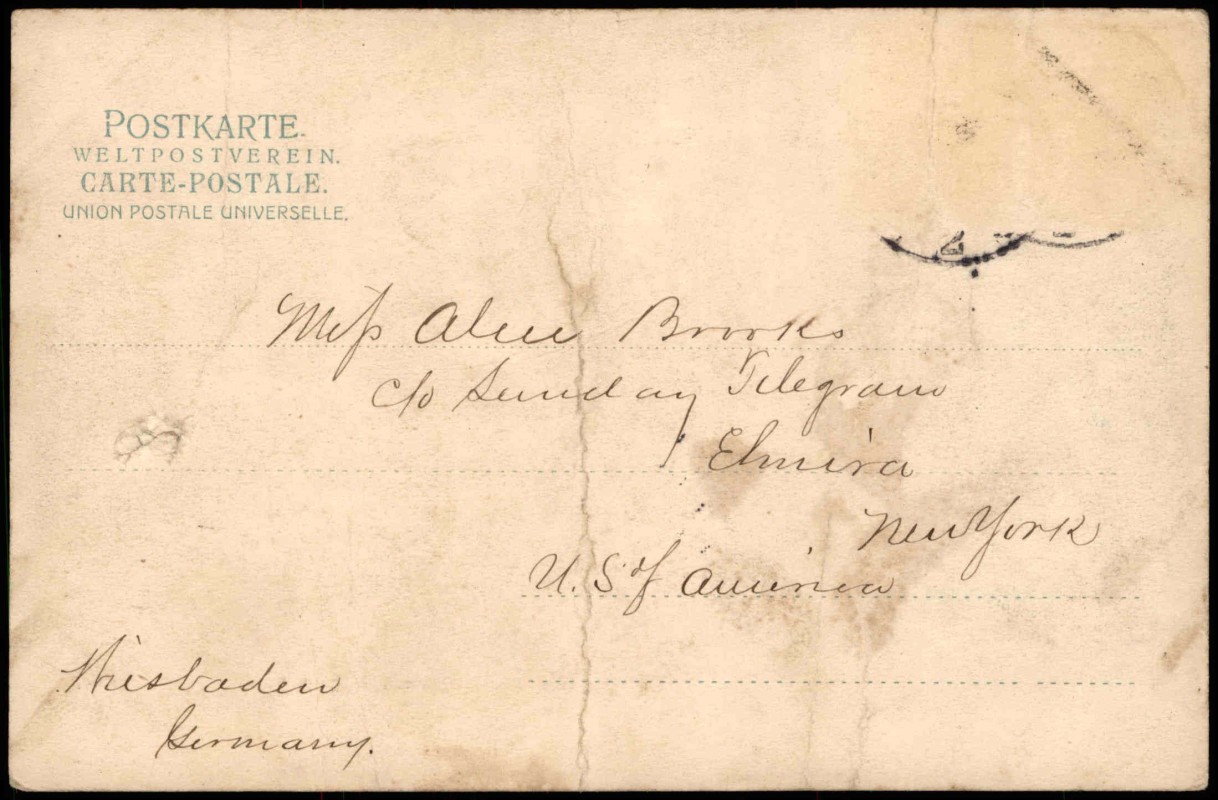 POSTKARTE.
WELTPOSTVEREIN.
CARTE-POSTALE.
UNION POSTALE UNIVERSELLE.
Miss Alice Brooks
c/o Sunday Telegram
Elmira
New York
U. S of America
Wiesbaden
Germany.